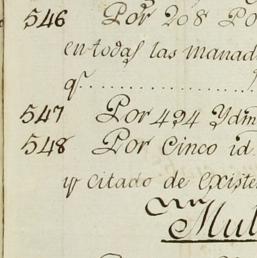 546 Por 208 Po
en todas las manad
q.
547 Por 494 Ydm
548 Por Cinco id
y citado de existe
Mul